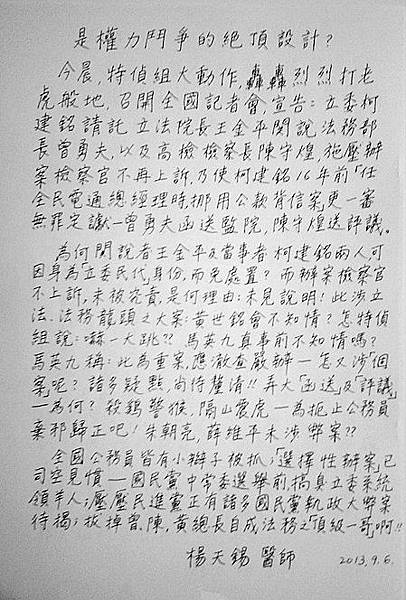 是權力鬥爭的絕頂設計?
今晨,特偵組大動作,轟轟烈烈打老
虎般地,召開全國記者會,宣告:立委柯
建銘請託立法院長王金平関說法務部
長曾勇夫,以及高檢檢察長陳守煌,施壓辦
案檢察官不再上訴,乃使柯建銘16年前「任
全民電通總經理時挪用公款背信案」更一審
無罪定讞—曾勇夫函送監院,陳守煌送評議。
為何関說者王金平及當事者柯建銘兩人,可
因身為立委民代,身份,而免處置?而辦案檢察官
不上訴,未被究責,是何理由;未見說明!此涉立
法、法務龍頭之大案:黃世銘會不知情?怎特偵
組說:嚇一大跳??馬英九真事前不知情嗎?
馬英九稱:此為重案,應澈查嚴辦—怎又涉「個
案」呢?諸多疑點,尚待釐清!!弄大「函送」及「評議」
—為何?殺鷄警猴,隔山震虎—為扼止公務員
棄邪歸正吧!朱朝亮,薛維平未涉弊案??
全國公務員皆有小辮子被抓;「選擇性辦案」已
司空見慣—國民黨中常委選舉前搞臭立委系統
領羊人;壓壓民進黨正有諸多國民黨執政大弊案
待揭;拔掉曾、陳,黃總長自成法務之「頂級一哥」啊!!
楊天錫 醫師 2013.9.6.